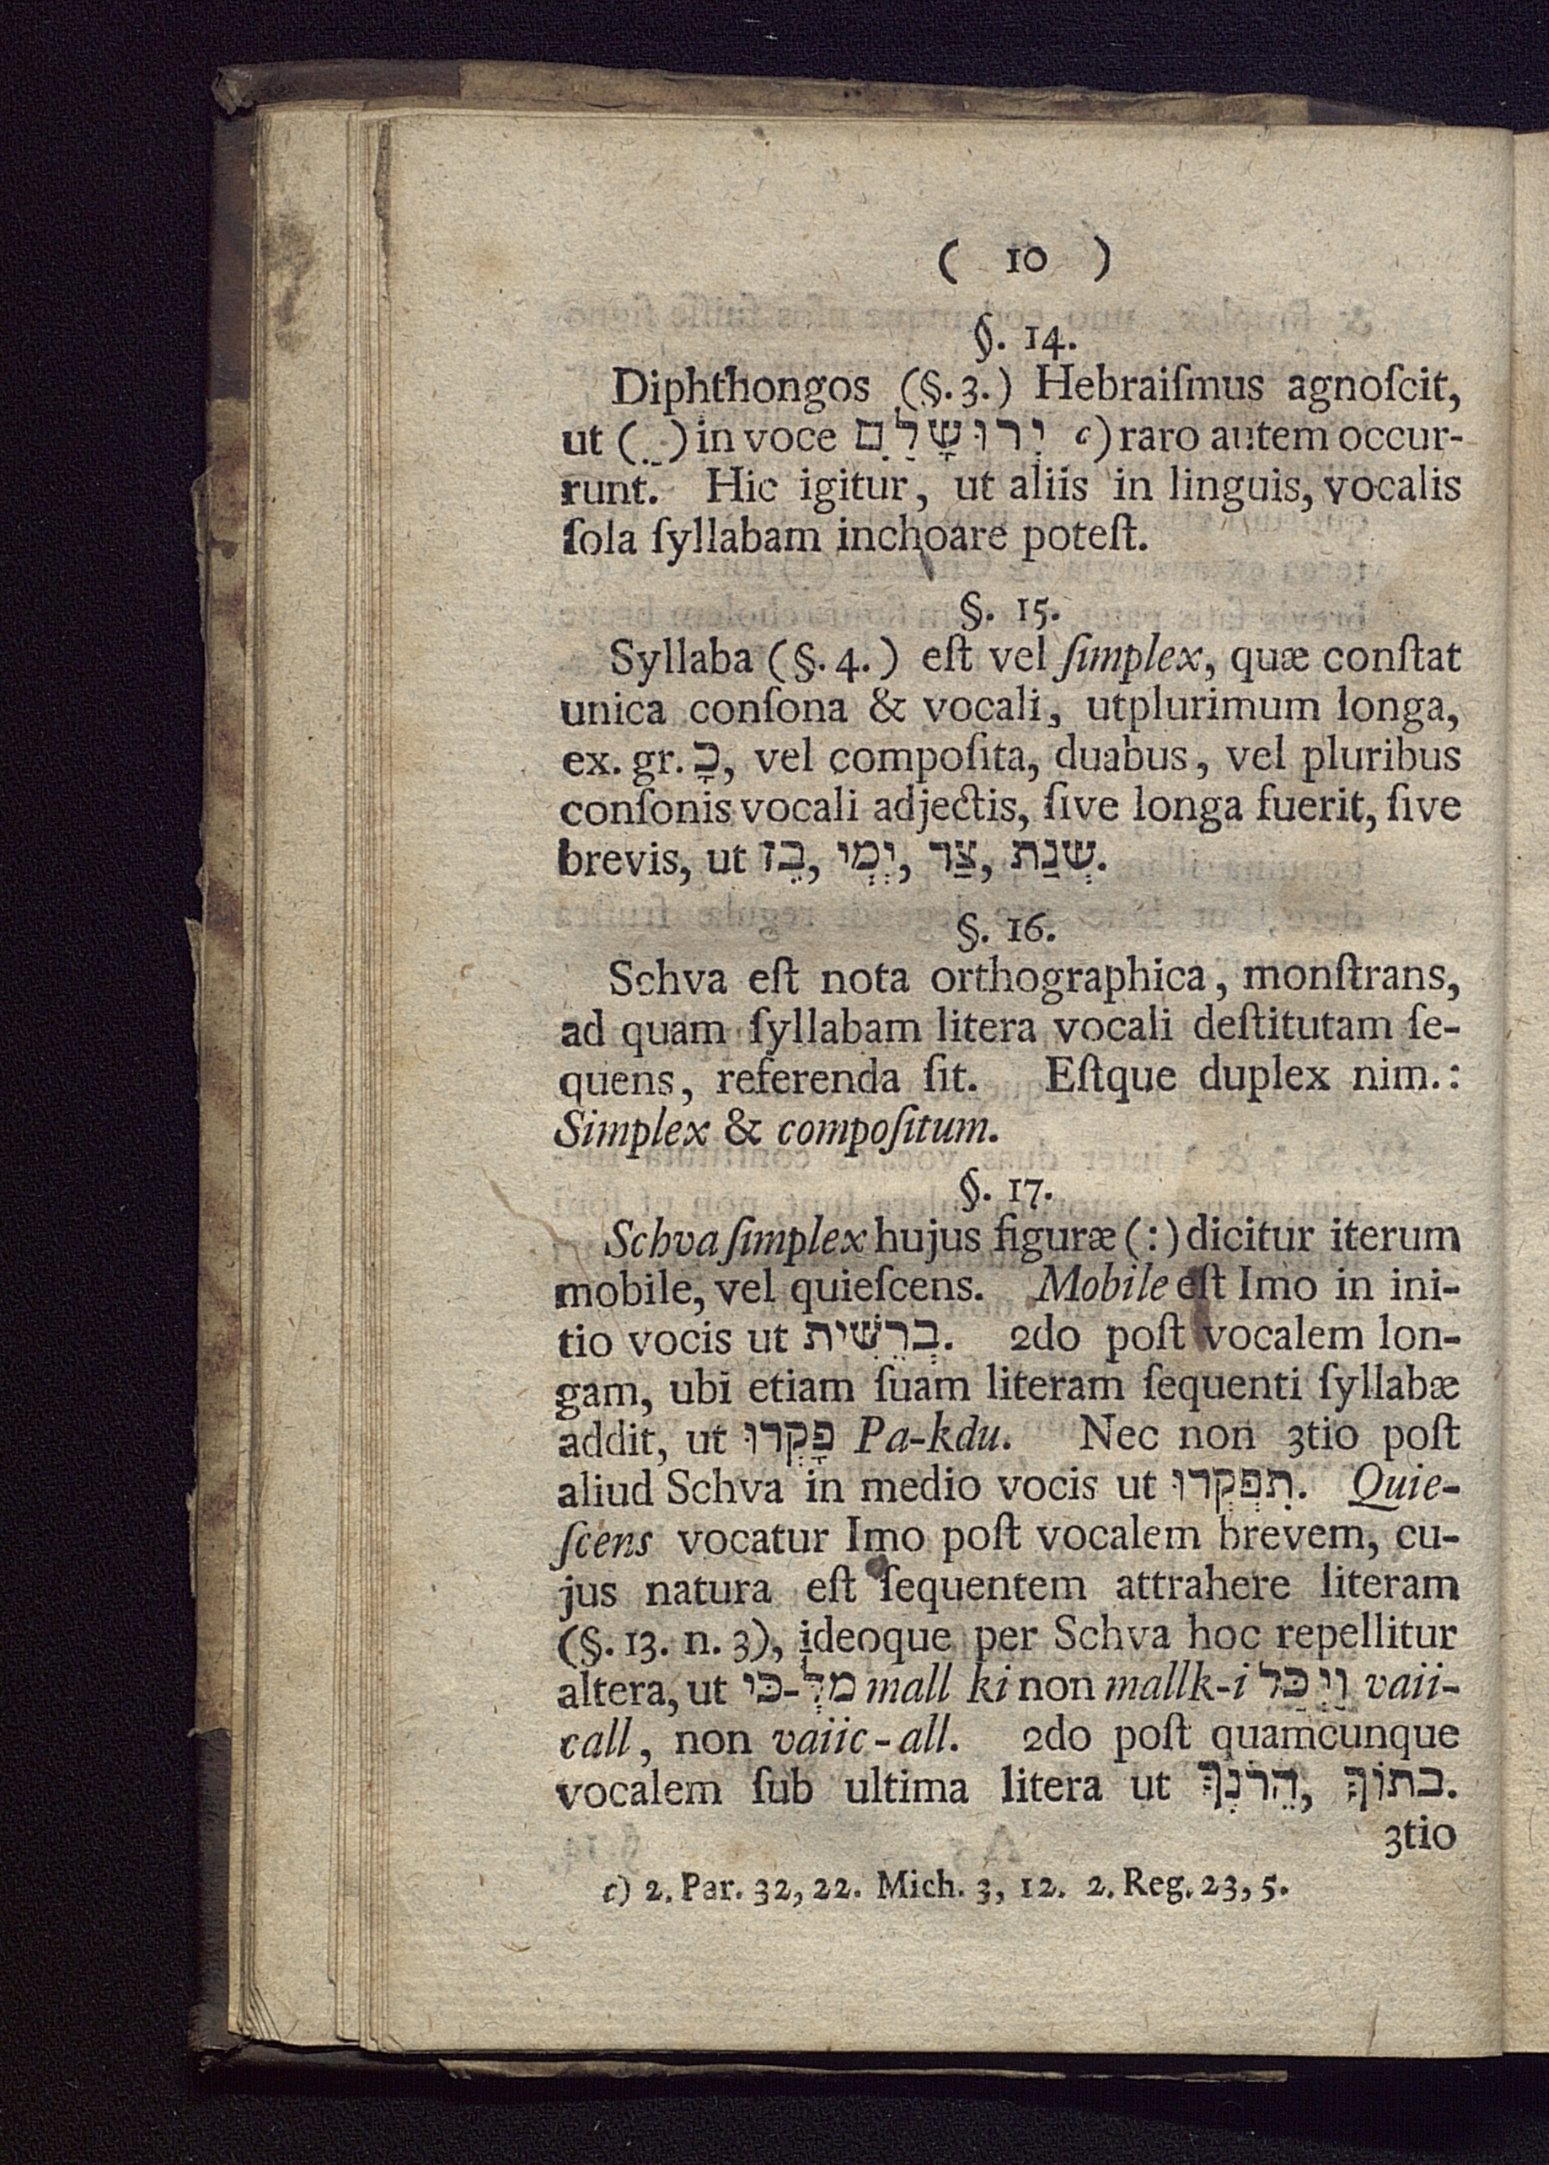 ( 10 )
§. 14.
Diphthongos (§. 3.) Hebraiſmus agnoſcit,
ut (ִַ) in voce יְרוּשָׁלַיִם c) raro autem occur-
runt. Hic igitur, ut aliis in linguis, vocalis
ſola ſyllabam inchoare poteſt.
§. 15.
Syllaba (§. 4.) eſt vel ſimplex, quæ conſtat
unica conſona & vocali, utplurimum longa,
ex. gr. כָ, vel compoſita, duabus, vel pluribus
conſonis vocali adjectis, ſive longa fuerit, ſive
brevis, ut בֵז, יְמְי, צַר, שְנַת.
§. 16.
Schva eſt nota orthographica, monſtrans,
ad quam ſyllabam litera vocali deſtitutam ſe-
quens, referenda ſit. Eſtque duplex nim.:
Simplex & compoſitum.
§. 17.
Schva ſimplex hujus figuræ (:) dicitur iterum
mobile, vel quieſcens. Mobile eſt Imo in ini-
tio vocis ut בְרֵשִׁית. 2do poſt vocalem lon-
gam, ubi etiam ſuam literam ſequenti ſyllabæ
addit, ut פָּקְרוּ Pa-kdu. Nec non 3tio poſt
aliud Schva in medio vocis ut תִפְקְרוּ. Quie-
ſcens vocatur Imo poſt vocalem brevem, cu-
jus natura eſt ſequentem attrahere literam
(§. 13. n. 3), ideoque per Schva hoc repellitur
altera, ut מלְ-כּי mall ki non mallk-i וַיְכַּל vaii-
call, non vaiic-all. 2do poſt quamcunque
vocalem ſub ultima litera ut הֵרֹנְךְ, בתוֹךְ.
3tio
c) 2. Par. 32, 22. Mich. 3, 12. 2. Reg. 23, 5.